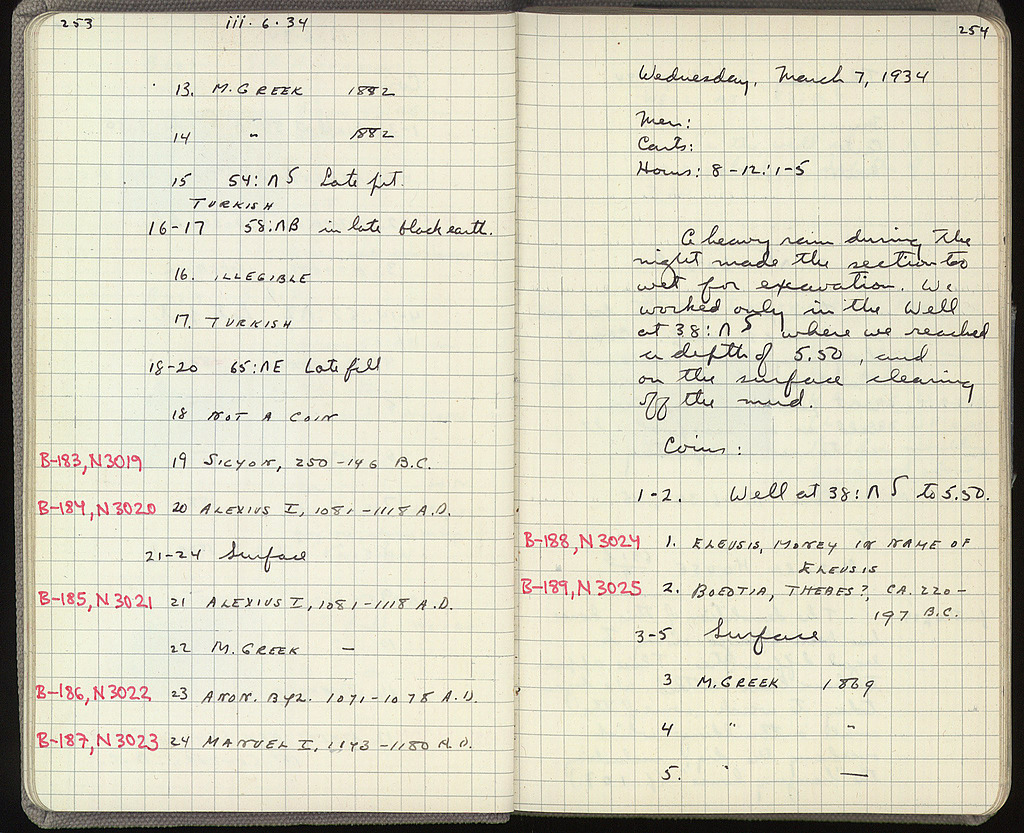 253 iii · 6 · 34
13. M. GREEK 1882
14 " 1882
15 54:ΛS Late pit.
TURKISH
16-17 58:ΛB in late black earth.
16. ILLEGIBLE
17. TURKISH
18-20 65:ΛE Late fill
18 NOT A COIN
B-183, N3019 19 SICYON, 250-146 B.C.
B-184, N3020 20 ALEXIUS I, 1081-1118 A.D.
21-24 Surface
B-185, N3021 21 ALEXIUS I, 1081-1118 A.D.
22 M. GREEK —
B-186, N3022 23 ANON. BYZ. 1071-1078 A.D.
B-187, N3023 24 MANUEL I, 1143-1180 A.D.
254
Wednesday, March 7, 1934
Men:
Carts:
Hours: 8-12:1-5
A heavy rain during the
night made the section too
wet for excavation. We
worked only in the Well
at 38:ΛS where we reached
a depth of 5.50, and
on the surface clearing
off the mud.
Coins:
1-2. Well at 38:ΛS to 5.50.
B-188, N3024 1. ELEUSIS, MONEY IN NAME OF
ELEUSIS
B-189, N3025 2. BOEOTIA, THEBES?, CA. 220-
197 B.C.
3-5 Surface
3 M. GREEK 1869
4 " "
5. " —